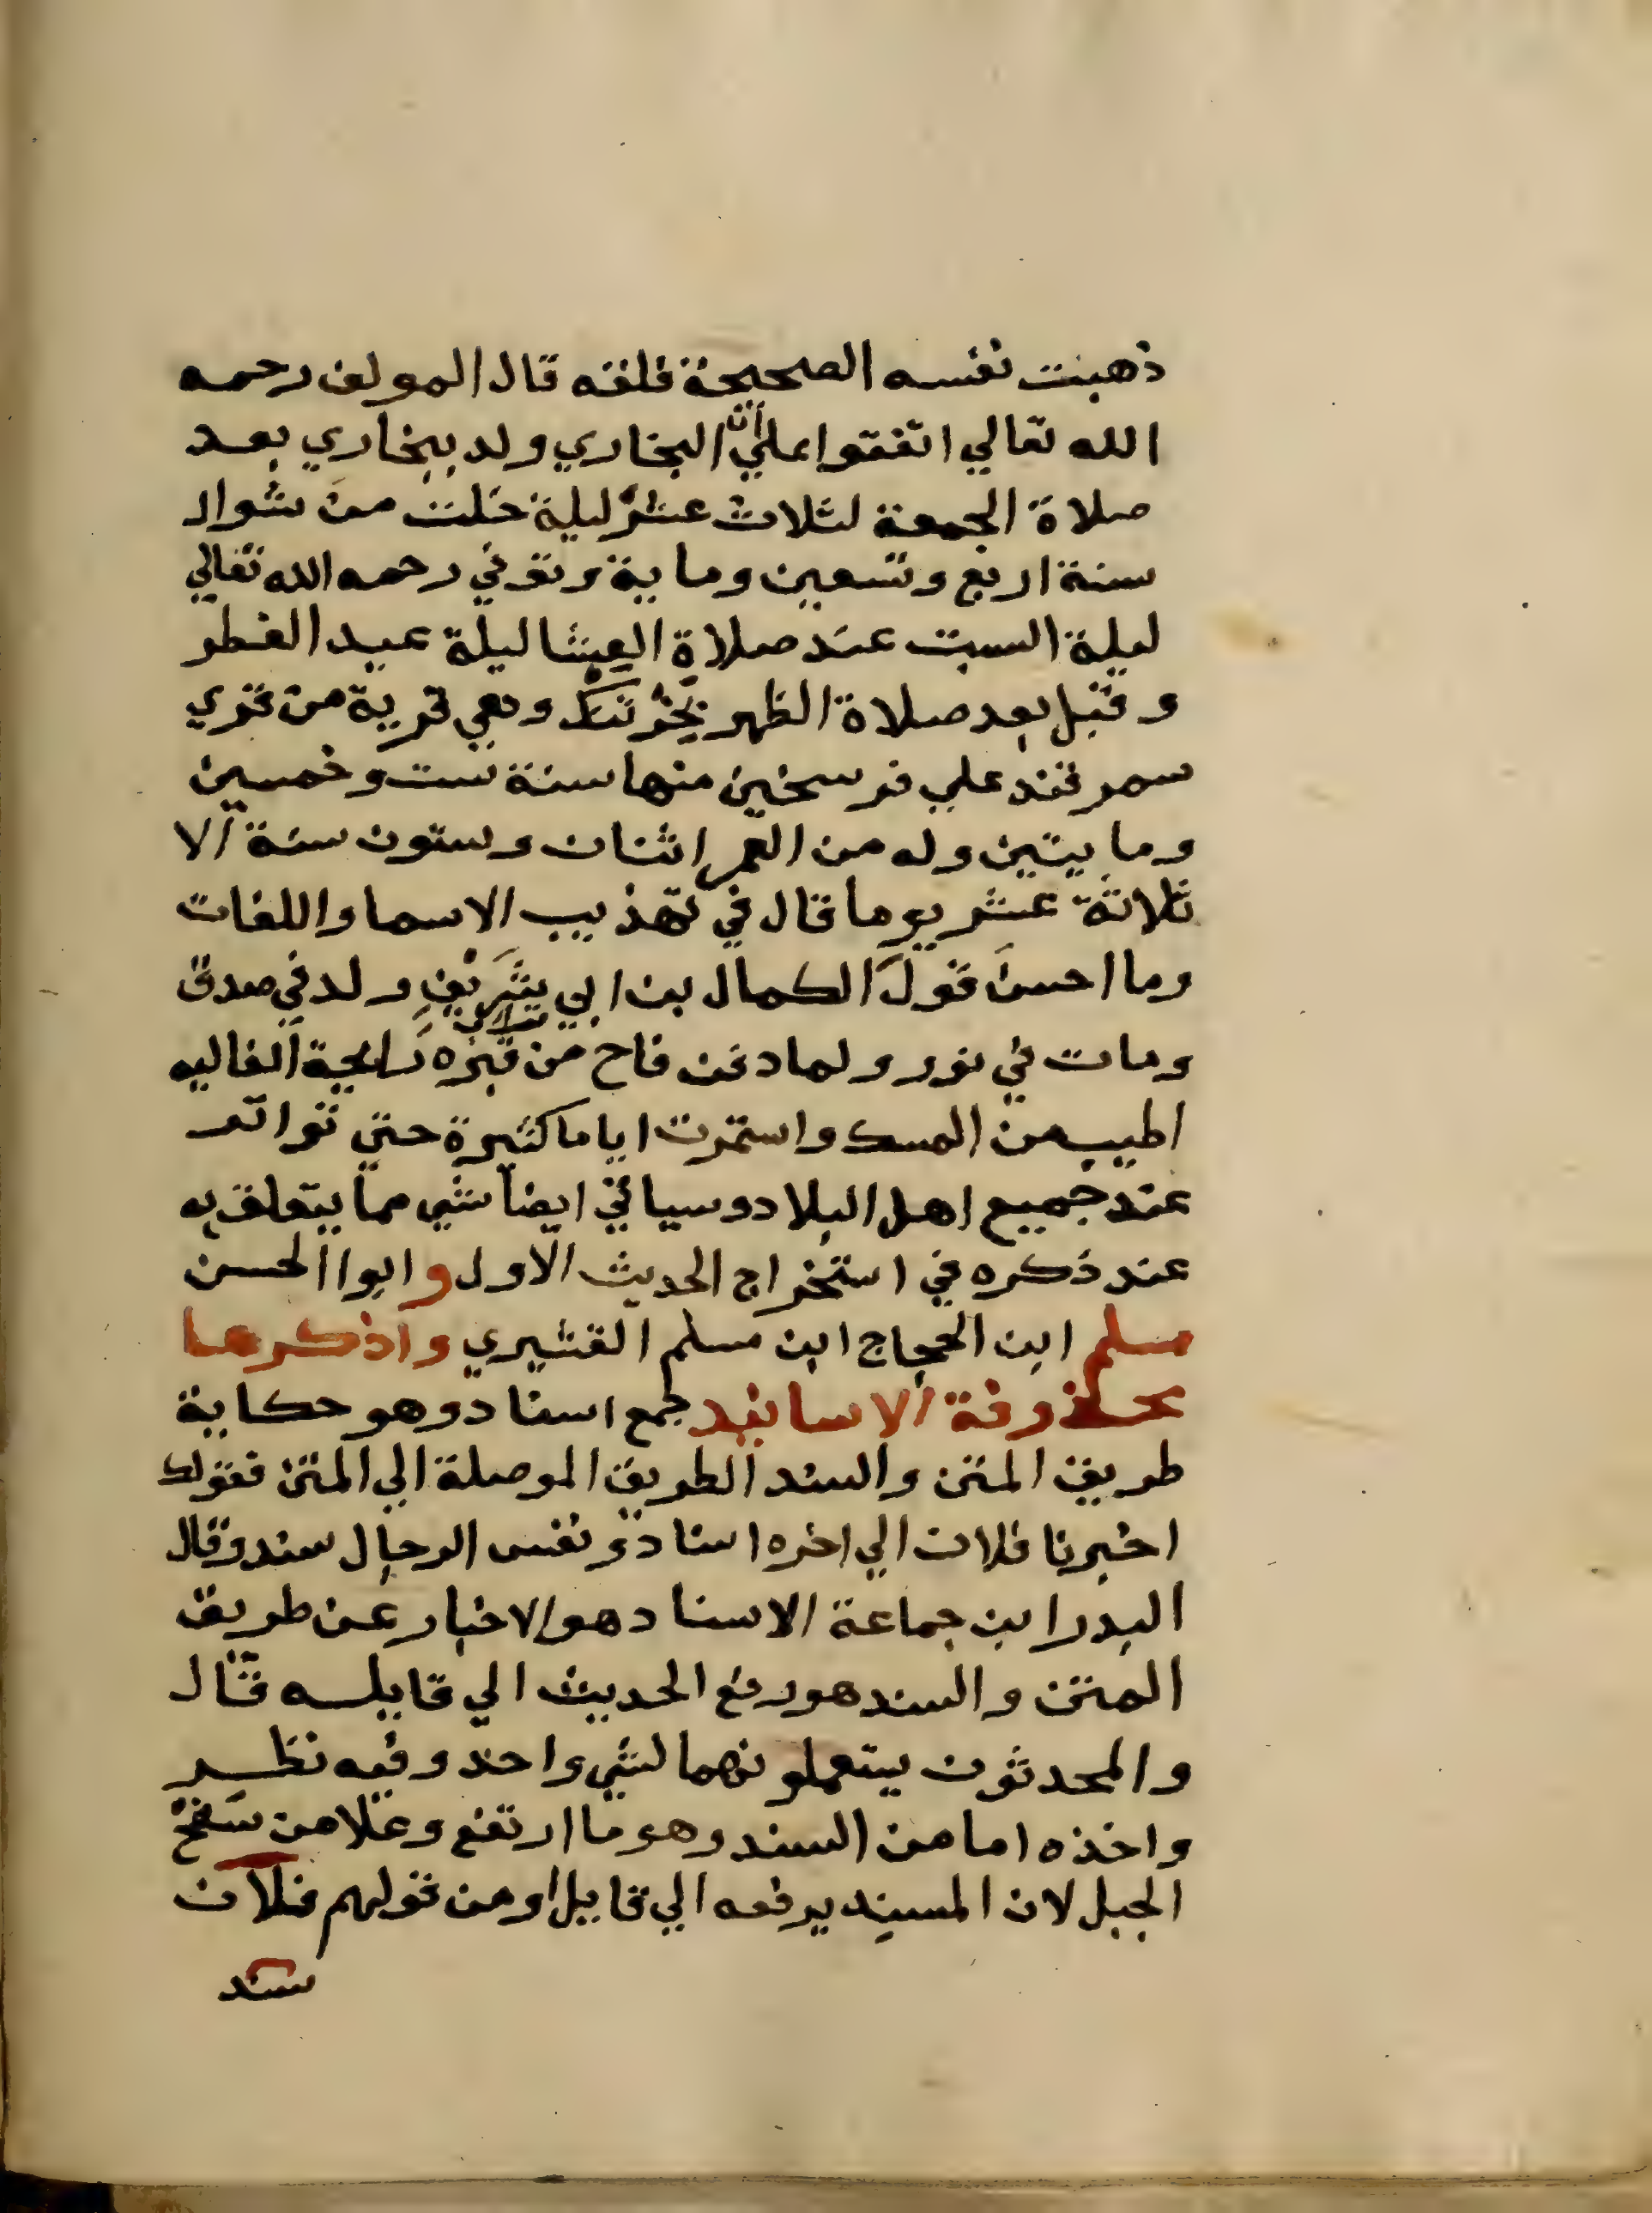 ذهبت نفسه الصحيحة فلقه قال المولف رحمه
الله تعالي اتفقوا علي ان البخاري ولد ببخاري بعد
صلاة الجمعة لثلاث عشر ليلة خلت من شوال
سنة اربع وتسعين وماية وتوفي رحمه الله تعالي
ليلة السبت عند صلاة العِشا ليلة عيد الفطر
وقيل بعد صلاة الظهر بخَرْتَنْك وهي قرية من قري
سمرقند علي فرسخين منها سنة ست وخمسين
ومايتين وله من العمر اثنان وستون سنة الا
ثلاثة عشر يوما قال في تهذيب الاسما واللغات
وما احسنَ قولَ الكمال بن ابي شَرِيْفٍ ولد في صدق
ومات في نور ولما دفن فاح من قبره رايحة الغاليه
اطيب من المسك واستمرت اياما كثيرة حتي تواتر
عند جميع اهل البلاد وسياتي ايضا شي مما يتعلق به
عند ذكره في استخراج الحديث الاول وابوا الحسن
مسلم ابن الحجاج ابن مسلم القشيري واذكرها
محذوفة الاسانيد جمع اسناد وهو حكاية
طريق المتن والسند الطريق الموصلة الي المتن فقولك
اخبرنا فلان الي اخره اسناد ونفس الرجال سند وقال
البدر ابن جماعة الاسناد هو الاخبار عن طريق
المتن والسند هو رفع الحديث الي قايله قال
والمحدثون يستعملونهما لشي واحد وفيه نظر
واخذه اما من السند وهو ما ارتفع وعلا من سَفْح
الجبل لان المسنِد يرفعه الي قايل او من قولهم فلان
سند